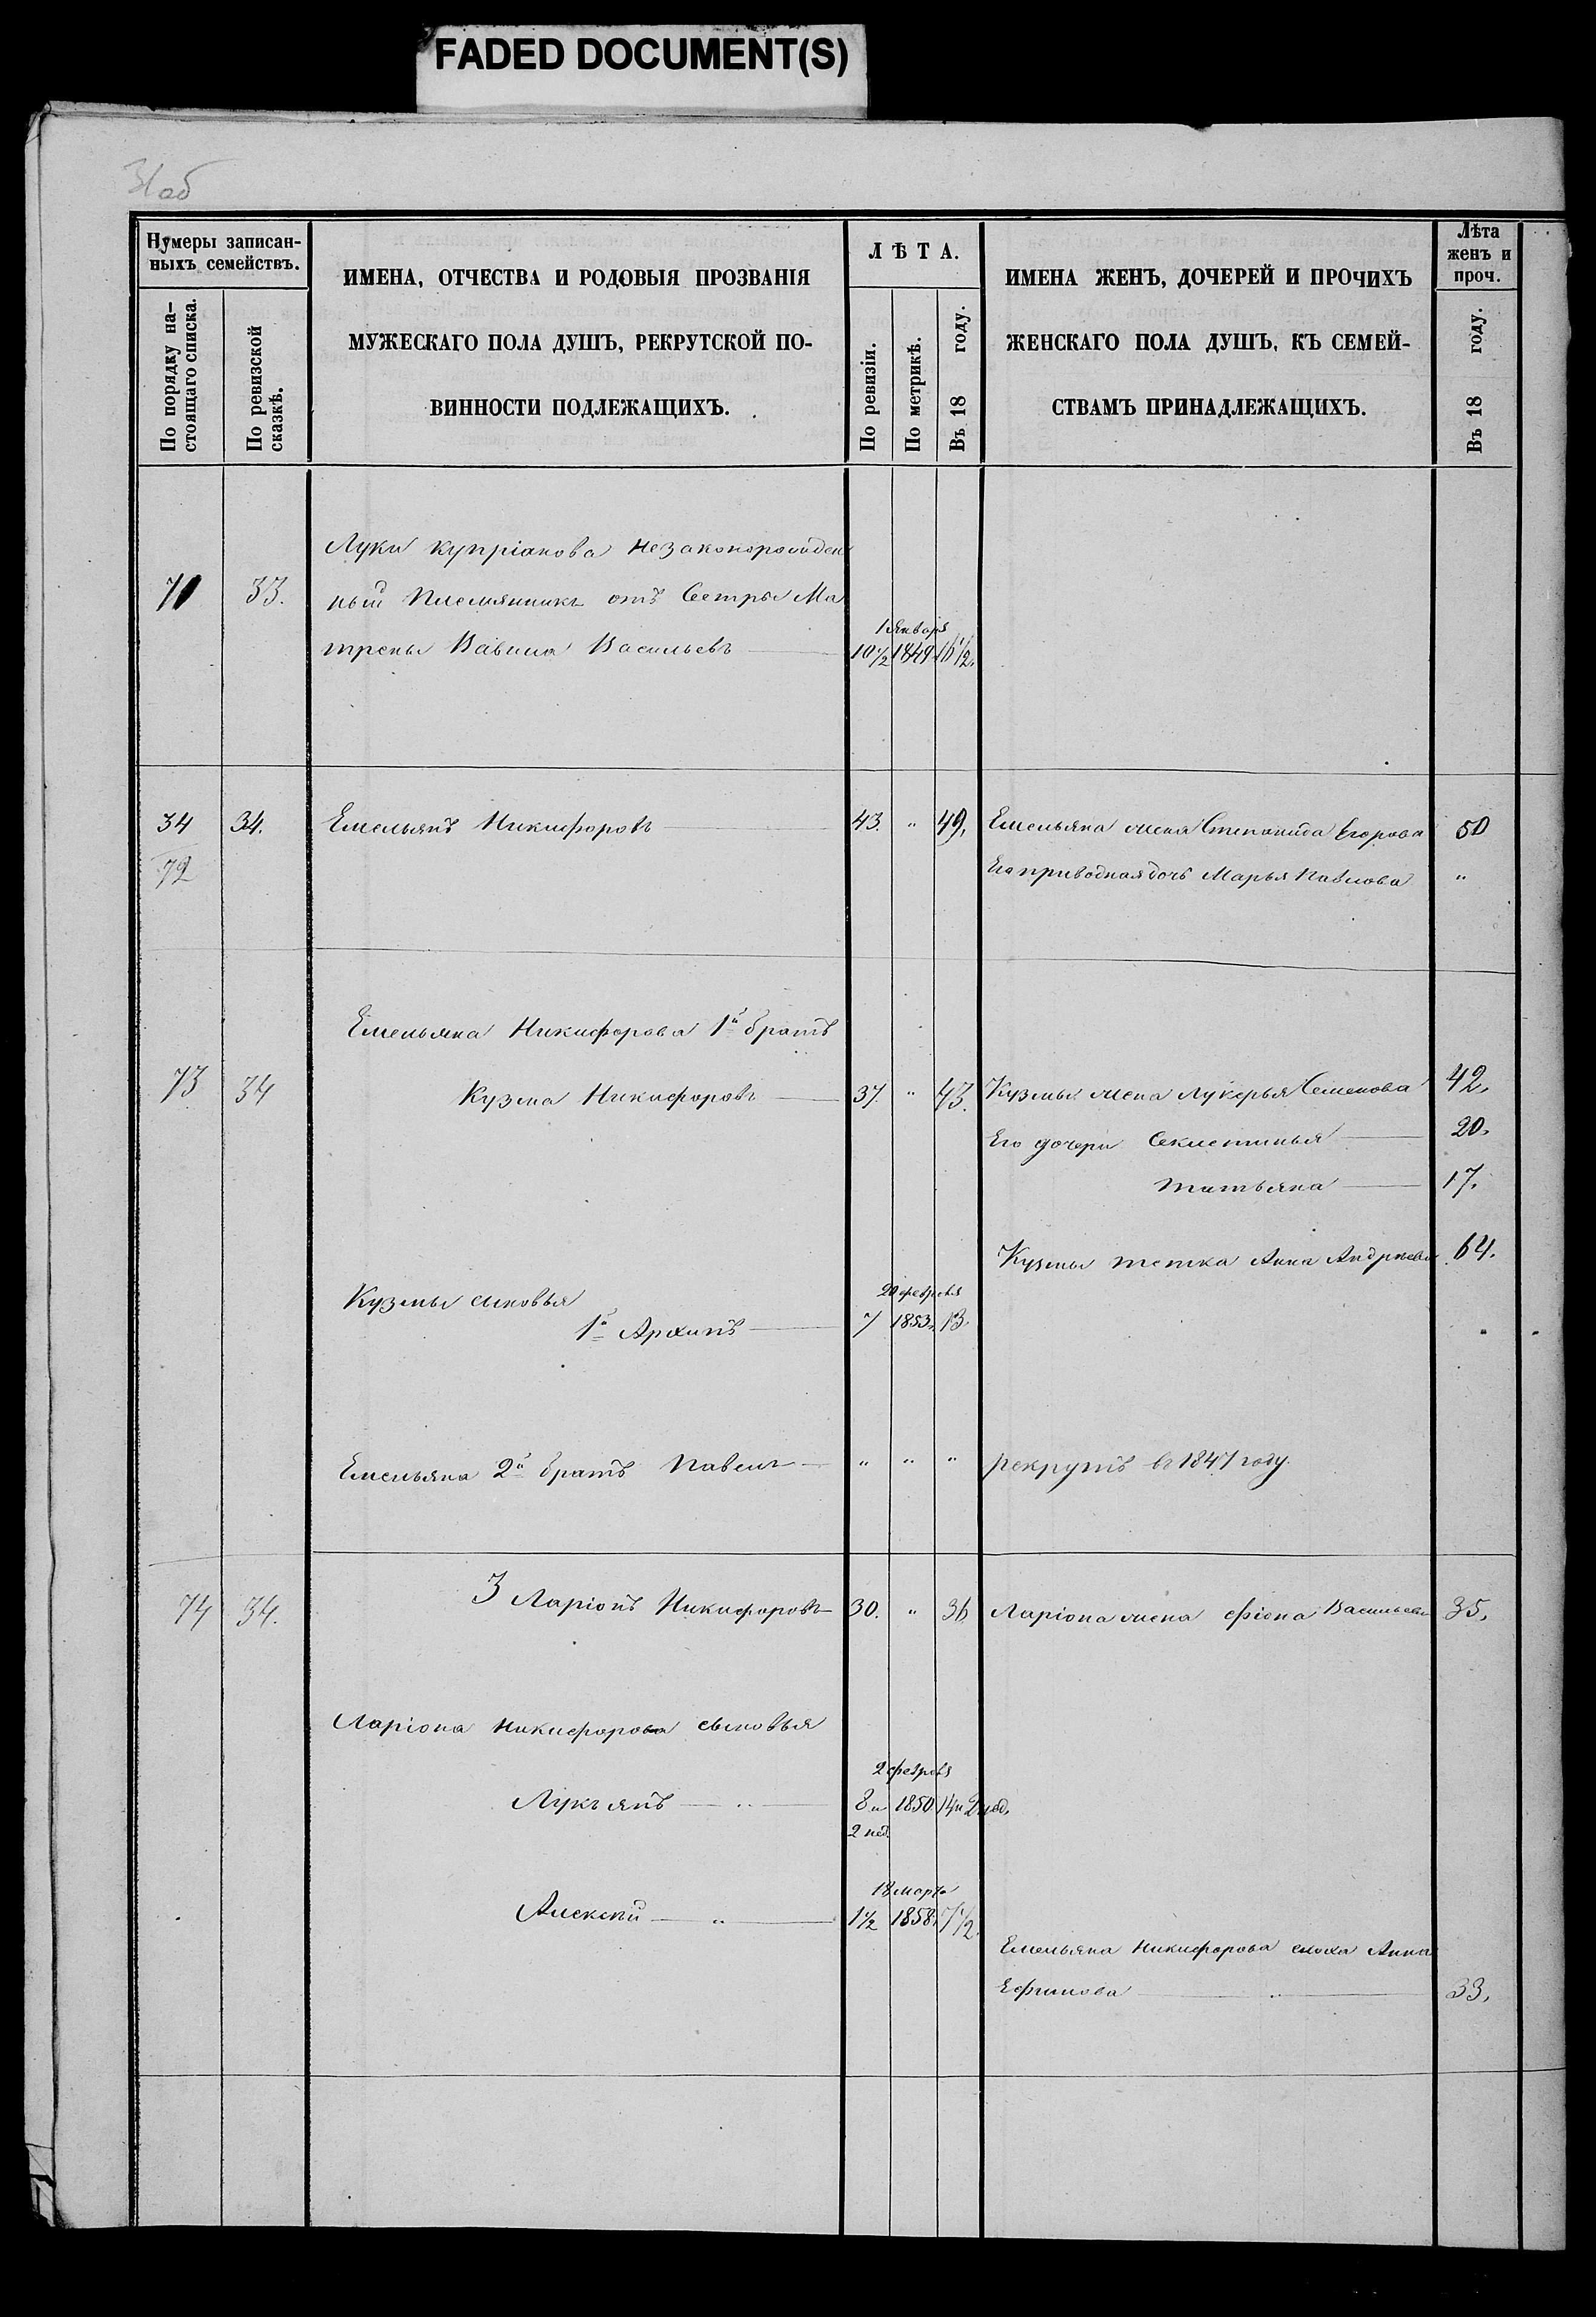 FADED DOCUMENT(S)
31об
Нумеры записан-
ныхъ семействъ.
По порядку на-
стоящаго списка.
По ревизской
сказкѣ.
ИМЕНА, ОТЧЕСТВА И РОДОВЫЯ ПРОЗВАНІЯ
МУЖЕСКАГО ПОЛА ДУШЪ, РЕКРУТСКОЙ ПО-
ВИННОСТИ ПОДЛЕЖАЩИХЪ.
ЛѢТА.
По ревизіи.
По метрикѣ.
Въ 18 году.
ИМЕНА ЖЕНЪ, ДОЧЕРЕЙ И ПРОЧИХЪ
ЖЕНСКАГО ПОЛА ДУШЪ, КЪ СЕМЕЙ-
СТВАМЪ ПРИНАДЛЕЖАЩИХЪ.
Лѣта
женъ и
проч.
Въ 18 году.
Луки купріанова незаконорожден
71 33. ный Племянникъ отъ Сестры Ма
1 Января
трены Вавила Васильевъ 10 1/2 1849 16 1/2.
34 34. Емельянъ Никифоровъ 43. " 49, Емельяна жена Степанида Егорова 50
72 Ея приводная дочь Марья Павлова "
Емельяна Никифорова 1й братъ
73 34 Кузма Никифоровъ 37. " 43. Кузмы жена Лукерья Семенова 42,
Его дочери Секлетинья 20,
Татьяна 17.
Кузмы тетка Анна Андреева 64.
Кузмы сыновья 20 февраля
1й Архипъ 7 1853. 13.
Емельяна 2й братъ Павелъ " " " рекрутъ въ 1847 году.
74 34. 3 Ларіонъ Никифоровъ 30. " 36 Ларіона жена Фіона Васильева 35,
Ларіона Никифорова сыновья
2 февраля
Лукъянъ " 8 и 1850 14 и 2 нед.
2 нед.
18 марта
Алексѣй " 1 1/2 1858. 7 1/2.
Емельяна Никифорова сноха Анна
Ефимова " 33,